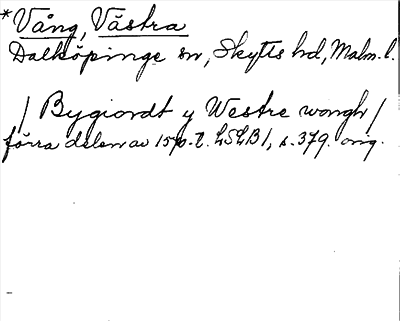 *Vång, Västra
Dalköpinge sn, Skytts hd, Malm. l.
/ Bygiordt y Westre wongh /
förra delen av 15 -t. LSLB 1, s. 379. orig.